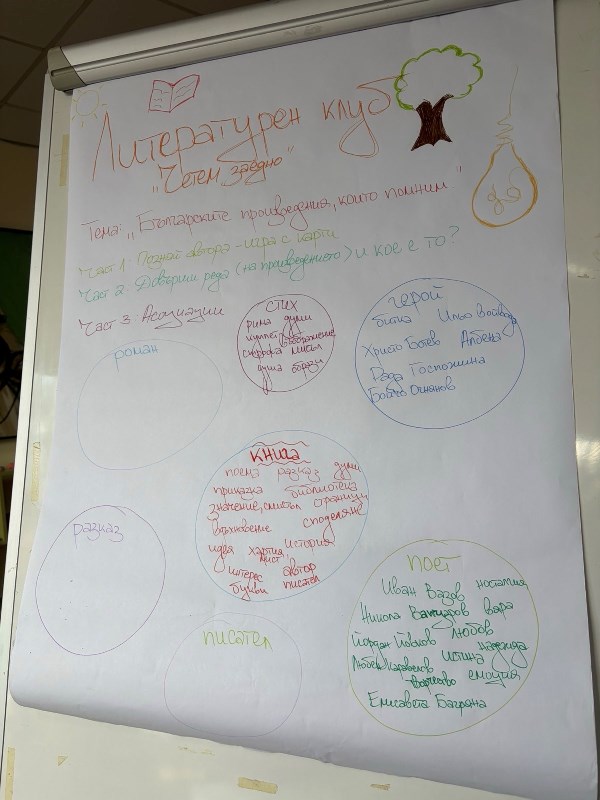 Литературен клуб
"Четем заедно"
Тема: „Българските произведения, които помним"
Част 1: Познай автора – игра с карти
Част 2: Довърши реда (на произведението) и кое е то?
Част 3: Асоциации
роман
стих
рима думи
куплет въображение
строфа мисъл
душа образи
герой
битка Ильо Войвода
Христо Ботев Албена
Рада Госпожина
Бойчо Огнянов
книга
поема разказ думи
приказка библиотека
значение, смисъл страници
вдъхновение споделяне
идея хартия, история
лист
интерес автор
букви писател
разказ
писател
поет
Иван Вазов носталгия
Никола Вапцаров вяра
Йордан Йовков любов
Любен Каравелов истина надежда
творчество емоция
Елисавета Багряна